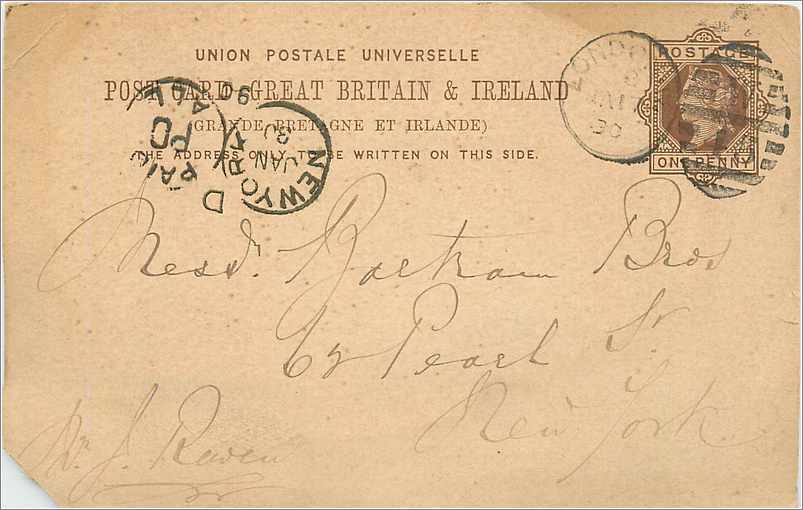 UNION POSTALE UNIVERSELLE
POST CARD-GREAT BRITAIN & IRELAND
(GRANDE BRETAGNE ET IRLANDE)
THE ADDRESS ONLY TO BE WRITTEN ON THIS SIDE.
POSTAGE
ONE PENNY
LONDON
90
NEW YORK
JAN
30
90
PAID
D
Messrs. Bartram Bros
62 Pearl St
New York
J. Raven